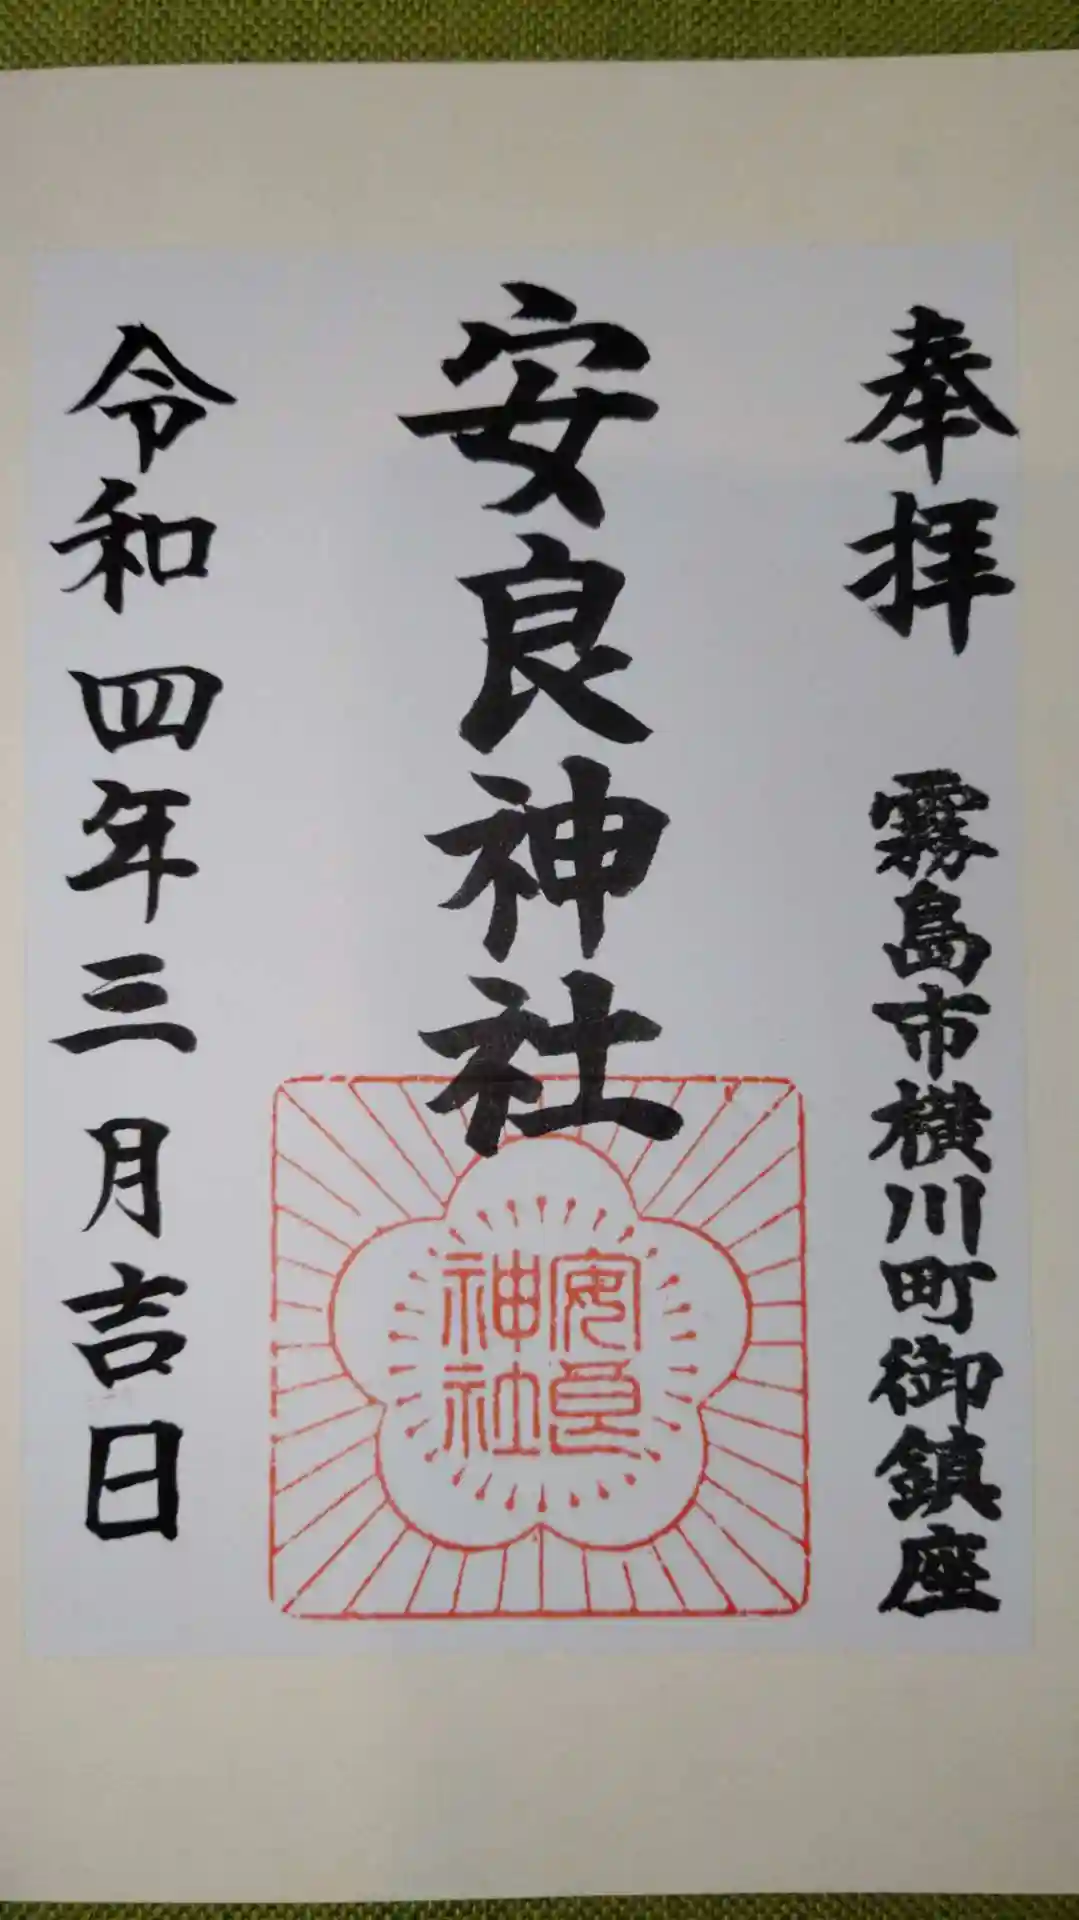 奉拝 霧島市横川町御鎮座
安良神社
安良
神社
令和四年三月吉日